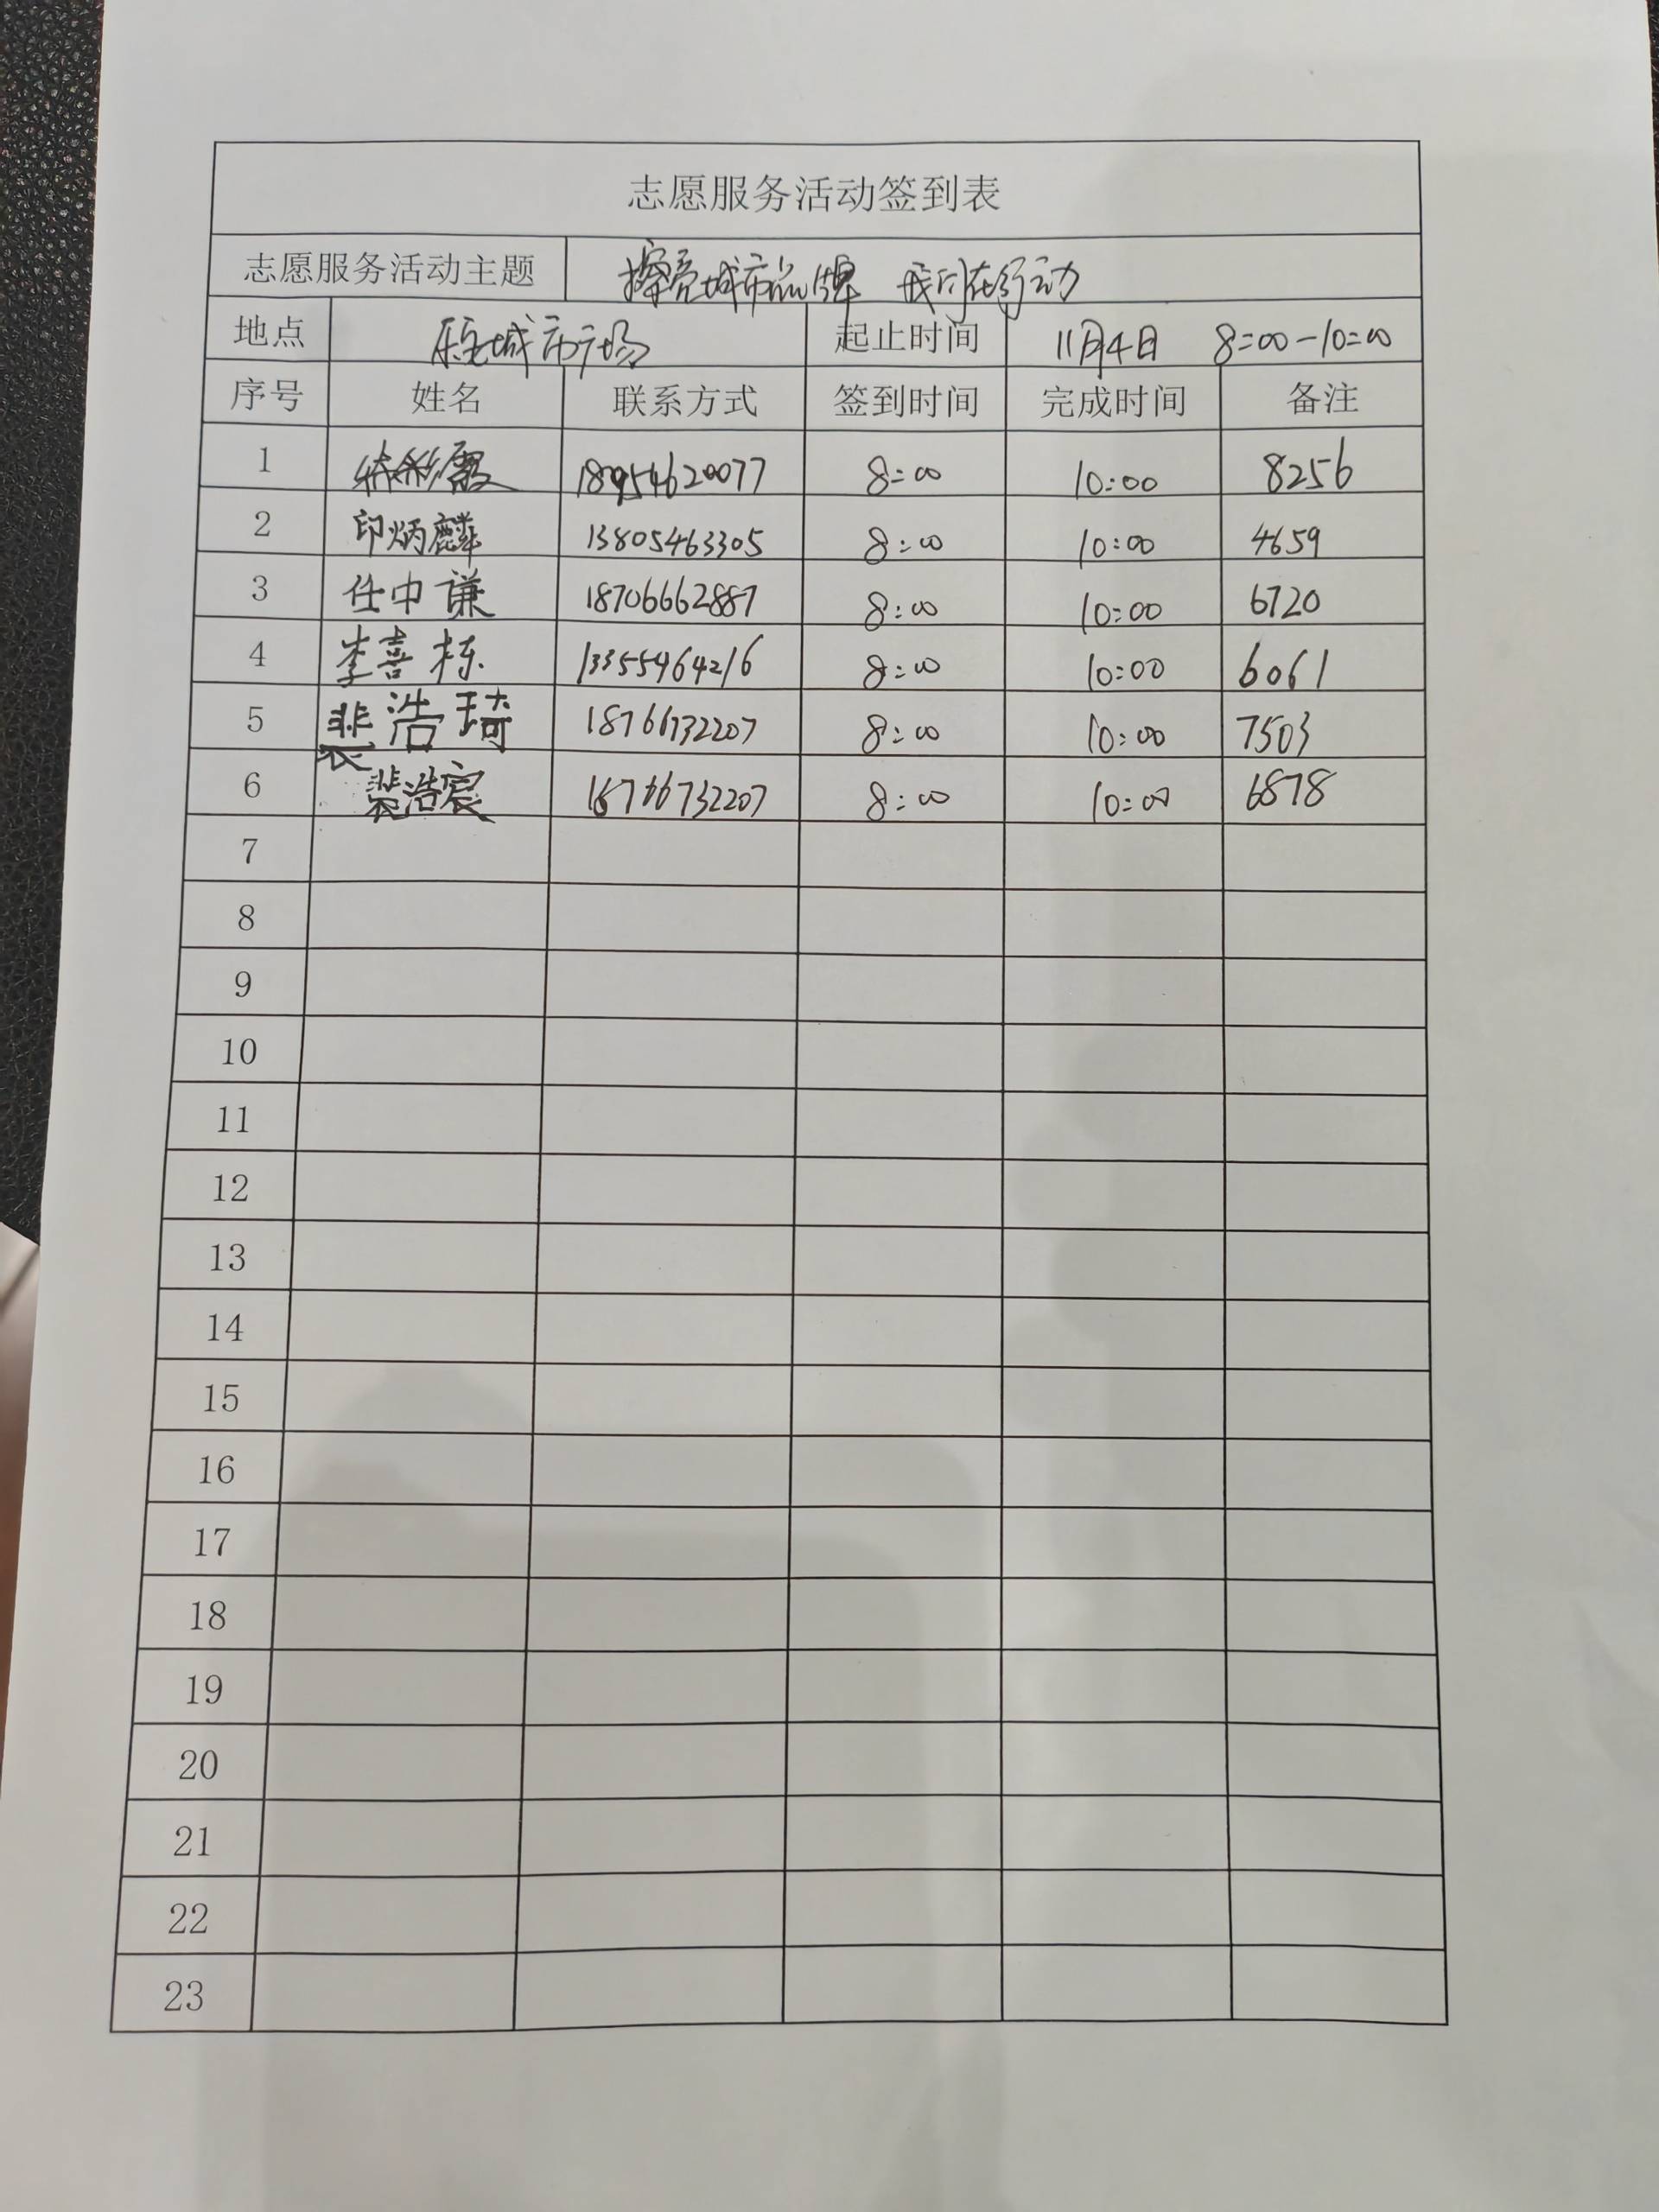 志愿服务活动签到表
志愿服务活动主题 擦亮城市品牌 我们在行动
地点 城市广场 起止时间 11月4日 8:00-10:00
序号 姓名 联系方式 签到时间 完成时间 备注
1 彩霞 18954620077 8:00 10:00 8256
2 印炳麟 13805463305 8:00 10:00 4659
3 任中谦 18706662887 8:00 10:00 6720
4 李喜栋 13355464216 8:00 10:00 6061
5 裴浩琦 18766732207 8:00 10:00 7503
6 裴浩宸 18766732207 8:00 10:00 6878
7
8
9
10
11
12
13
14
15
16
17
18
19
20
21
22
23